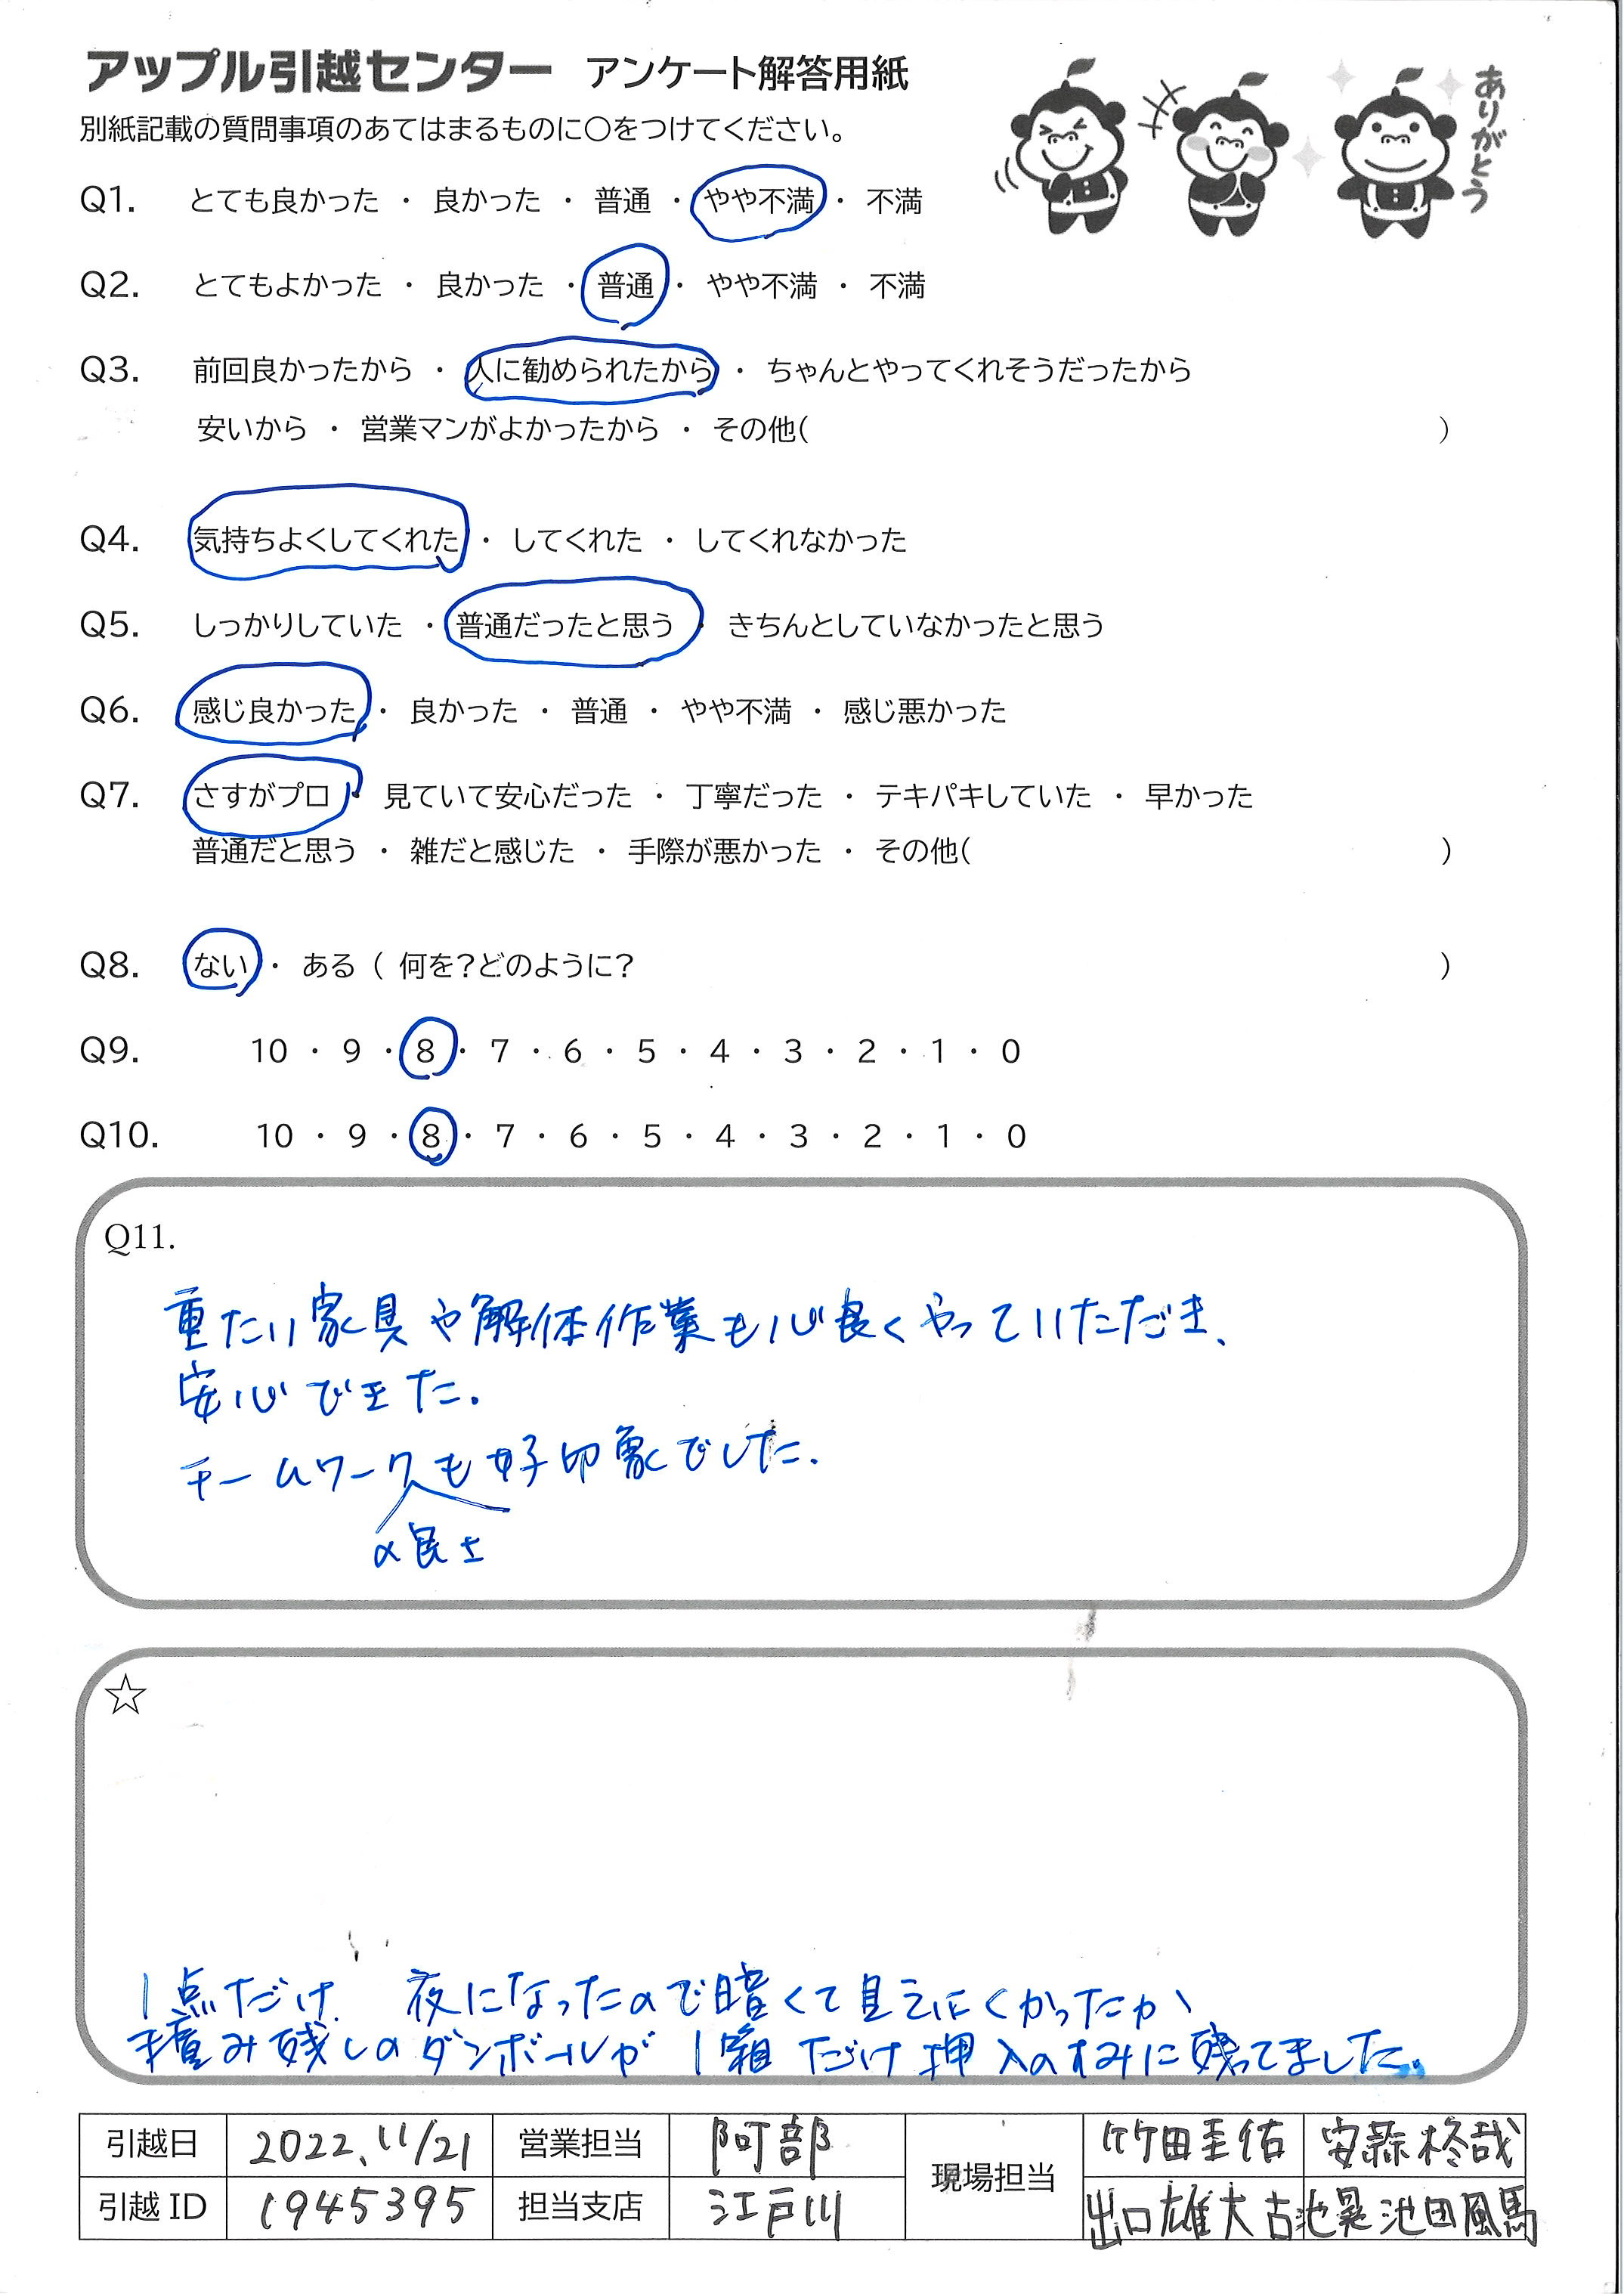 アップル引越センター アンケート解答用紙
別紙記載の質問事項のあてはまるものに〇をつけてください。
ありがとう
Q1. とても良かった ・ 良かった ・ 普通 ・ やや不満 ・ 不満
Q2. とてもよかった ・ 良かった ・ 普通 ・ やや不満 ・ 不満
Q3. 前回良かったから ・ 人に勧められたから ・ ちゃんとやってくれそうだったから
安いから ・ 営業マンがよかったから ・ その他( )
Q4. 気持ちよくしてくれた ・ してくれた ・ してくれなかった
Q5. しっかりしていた ・ 普通だったと思う ・ きちんとしていなかったと思う
Q6. 感じ良かった ・ 良かった ・ 普通 ・ やや不満 ・ 感じ悪かった
Q7. さすがプロ ・ 見ていて安心だった ・ 丁寧だった ・ テキパキしていた ・ 早かった
普通だと思う ・ 雑だと感じた ・ 手際が悪かった ・ その他( )
Q8. ない ・ ある ( 何を?どのように? )
Q9. 10 ・ 9 ・ 8 ・ 7 ・ 6 ・ 5 ・ 4 ・ 3 ・ 2 ・ 1 ・ 0
Q10. 10 ・ 9 ・ 8 ・ 7 ・ 6 ・ 5 ・ 4 ・ 3 ・ 2 ・ 1 ・ 0
Q11.
重たい家具や解体作業も心良くやっていただき、
安心できた。
チームワークも好印象でした。
の良さ
☆
1点だけ、夜になったので暗くて見えにくかったか
積み残しのダンボールが1箱だけ押入のすみに残ってました。
引越日 2022.11/21 営業担当 阿部 現場担当 竹田圭佑 安藤柊哉
引越 ID 1945395 担当支店 江戸川 出口雄大 古池晃 池田風馬